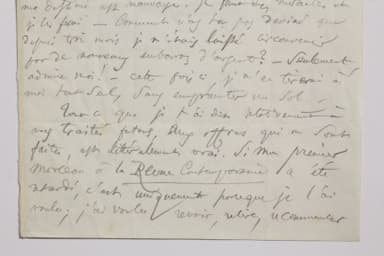 est mauvaise. Je ferai des miracles et
je les ferai — Comment n'as tu pas deviné que
depuis trois mois je m'étais laissé circonvenir
par de nouveaux embarras d'argent? — Seulement
admire moi! — cette fois ci je m'en tirerai à
moi tout seul, sans emprunter un sol —
Tout ce que je t'ai dit relativement à
mes traités futurs, aux offres qui me sont
faites, est littéralement vrai. Si mon premier
morceau à la Revue Contemporaine a été
retardé, c'est uniquement parce que je l'ai
voulu; j'ai voulu revoir, relire, recommencer